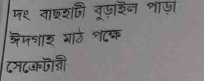 দঃ বাছহাটী বুড়াইল পাড়া
ঈদগাহ মাঠ পক্ষে
সেক্রেটারী